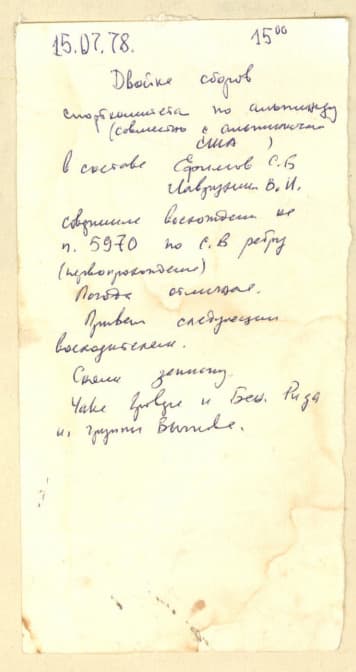 15.07.78. 15⁰⁰
Двойка сборов
спорткомитета по альпинизму
(совместно с альпинистами
США)
в составе Ефимов С.Б
Лаврушин В. И.
совершила восхождение на
п. 5970 по С.В ребру
(первопрохождение)
Погода отличная.
Привет следующим
восходителям.
Сняли записку
и
и. группы